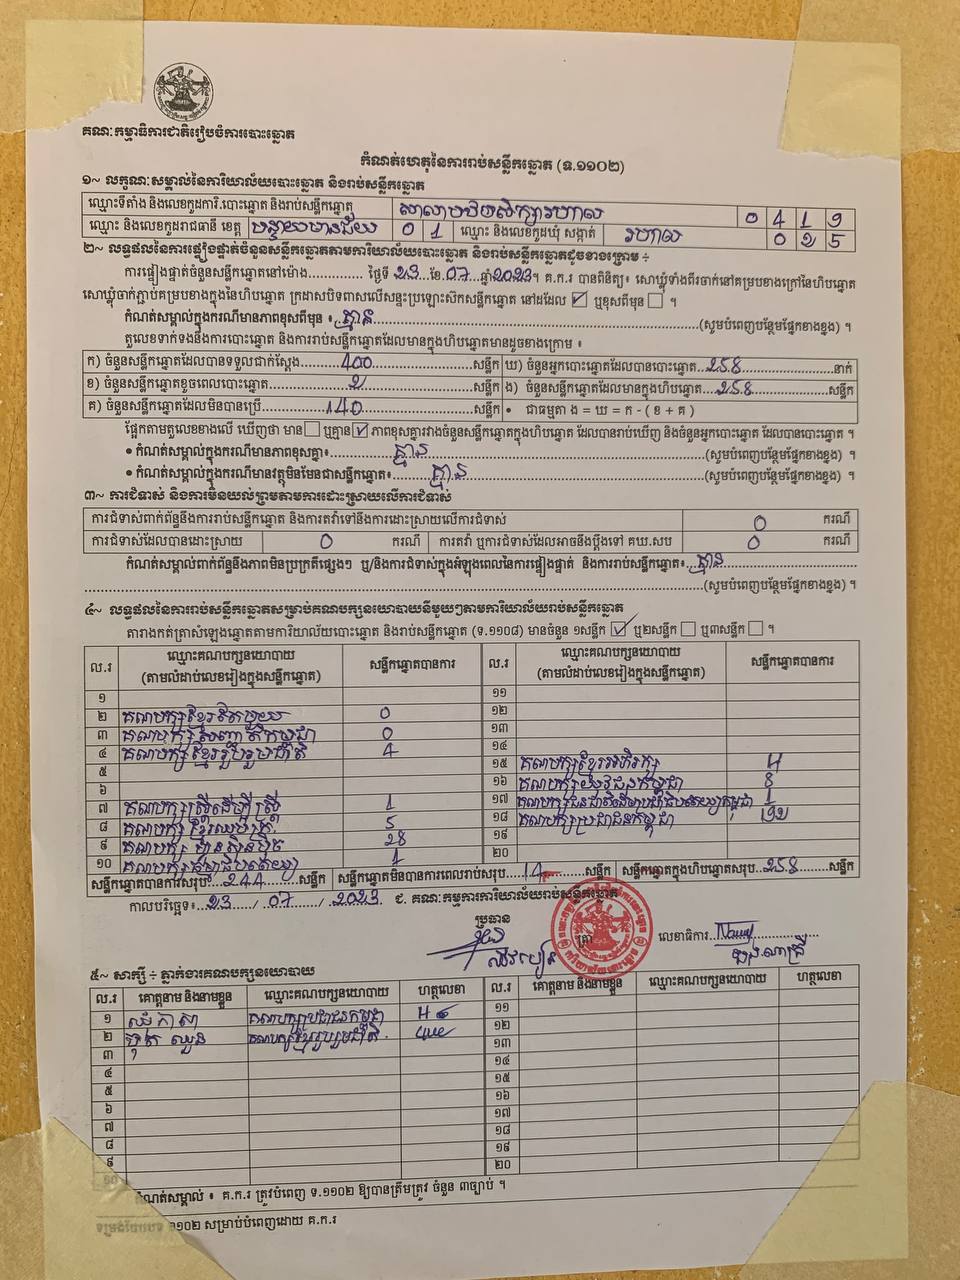 គណៈកម្មាធិការជាតិរៀបចំការបោះឆ្នោត
កំណត់ហេតុនៃការរាប់សន្លឹកឆ្នោត (ទ.១១០២)
១~ លក្ខណៈសម្គាល់នៃការិយាល័យបោះឆ្នោត និងរាប់សន្លឹកឆ្នោត
ឈ្មោះទីតាំង និងលេខកូដការិ.បោះឆ្នោត និងរាប់សន្លឹកឆ្នោត សាលាបឋមសិក្សារហាល 0 4 1 9
ឈ្មោះ និងលេខកូដរាជធានី ខេត្ត បន្ទាយមានជ័យ 0 1 ឈ្មោះ និងលេខកូដឃុំ សង្កាត់ រហាល 0 2 5
២~ លទ្ធផលនៃការផ្ទៀងផ្ទាត់ចំនួនសន្លឹកឆ្នោតតាមការិយាល័យបោះឆ្នោត និងរាប់សន្លឹកឆ្នោតដូចខាងក្រោម ÷
ការផ្ទៀងផ្ទាត់ចំនួនសន្លឹកឆ្នោតនៅម៉ោង............. ថ្ងៃទី 23 ខែ 07 ឆ្នាំ 2023។ គ.ក.រ បានពិនិត្យ៖ សោឃ្លុំទាំងពីរចាក់នៅគម្របខាងក្រៅនៃហិបឆ្នោត
សោឃ្លុំចាក់ភ្ជាប់គម្របខាងក្នុងនៃហិបឆ្នោត ក្រដាសបិទពាសលើសន្ទះប្រឡោះស៊កសន្លឹកឆ្នោត នៅដដែល ☑ ឬខុសពីមុន ☐ ។
កំណត់សម្គាល់ក្នុងករណីមានភាពខុសពីមុន ៖ គ្មាន (សូមបំពេញបន្ថែមផ្នែកខាងខ្នង) ។
តួលេខទាក់ទងនឹងការបោះឆ្នោត និងការរាប់សន្លឹកឆ្នោតដែលមានក្នុងហិបឆ្នោតមានដូចខាងក្រោម ៖
ក) ចំនួនសន្លឹកឆ្នោតដែលបានទទួលជាក់ស្តែង 400 សន្លឹក ឃ) ចំនួនអ្នកបោះឆ្នោតដែលបានបោះឆ្នោត 258 នាក់
ខ) ចំនួនសន្លឹកឆ្នោតខូចពេលបោះឆ្នោត 2 សន្លឹក ង) ចំនួនសន្លឹកឆ្នោតដែលមានក្នុងហិបឆ្នោត 258 សន្លឹក
គ) ចំនួនសន្លឹកឆ្នោតដែលមិនបានប្រើ 140 សន្លឹក • ជាធម្មតា ង = ឃ = ក - ( ខ + គ )
ផ្អែកតាមតួលេខខាងលើ ឃើញថា មាន ☐ ឬគ្មាន ☑ ភាពខុសគ្នារវាងចំនួនសន្លឹកឆ្នោតក្នុងហិបឆ្នោត ដែលបានរាប់ឃើញ និងចំនួនអ្នកបោះឆ្នោត ដែលបានបោះឆ្នោត ។
• កំណត់សម្គាល់ក្នុងករណីមានភាពខុសគ្នា៖ គ្មាន (សូមបំពេញបន្ថែមផ្នែកខាងខ្នង) ។
• កំណត់សម្គាល់ក្នុងករណីមានវត្ថុមិនមែនជាសន្លឹកឆ្នោត៖ គ្មាន (សូមបំពេញបន្ថែមផ្នែកខាងខ្នង) ។
៣~ ការជំទាស់ និងការមិនយល់ព្រមតាមការដោះស្រាយលើការជំទាស់
ការជំទាស់ពាក់ព័ន្ធនឹងការរាប់សន្លឹកឆ្នោត និងការតវ៉ាទៅនឹងការដោះស្រាយលើការជំទាស់ 0 ករណី
ការជំទាស់ដែលបានដោះស្រាយ 0 ករណី ការតវ៉ា ឬការជំទាស់ដែលអាចនឹងប្តឹងទៅ គឃ.សប 0 ករណី
កំណត់សម្គាល់ពាក់ព័ន្ធនឹងភាពមិនប្រក្រតីផ្សេងៗ ឬ/និងការជំទាស់ក្នុងអំឡុងពេលនៃការផ្ទៀងផ្ទាត់ និងការរាប់សន្លឹកឆ្នោត៖ គ្មាន
(សូមបំពេញបន្ថែមផ្នែកខាងខ្នង) ។
៤~ លទ្ធផលនៃការរាប់សន្លឹកឆ្នោតសម្រាប់គណបក្សនយោបាយនីមួយៗតាមការិយាល័យរាប់សន្លឹកឆ្នោត
តារាងកត់ត្រាសំឡេងឆ្នោតតាមការិយាល័យបោះឆ្នោត និងរាប់សន្លឹកឆ្នោត (ទ.១១០៨) មានចំនួន ១សន្លឹក ☑ ឬ២សន្លឹក ☐ ឬ៣សន្លឹក ☐ ។
ល.រ ឈ្មោះគណបក្សនយោបាយ (តាមលំដាប់លេខរៀងក្នុងសន្លឹកឆ្នោត) សន្លឹកឆ្នោតបានការ ល.រ ឈ្មោះគណបក្សនយោបាយ (តាមលំដាប់លេខរៀងក្នុងសន្លឹកឆ្នោត) សន្លឹកឆ្នោតបានការ
១ ១១
២ គណបក្សខ្មែរតែមួយ 0 ១២
៣ គណបក្សសញ្ជាតិកម្ពុជា 0 ១៣
៤ គណបក្សខ្មែររួបរួមជាតិ 4 ១៤
៥ ១៥ គណបក្សខ្មែរអភិរក្ស 4
៦ ១៦ គណបក្សយុវជនកម្ពុជា 8
៧ គណបក្សស្ត្រីដើម្បីស្ត្រី 1 ១៧ គណបក្សជនជាតិដើមប្រជាធិបតេយ្យកម្ពុជា 1
៨ គណបក្សខ្មែរ 5 ១៨ គណបក្សប្រជាជនកម្ពុជា 192
៩ គណបក្ស ហ៊្វុនស៊ិនប៉ិច 28 ១៩
១០ 1 ២០
សន្លឹកឆ្នោតបានការសរុប 244 សន្លឹក សន្លឹកឆ្នោតមិនបានការពេលរាប់សរុប 14 សន្លឹក សន្លឹកឆ្នោតក្នុងហិបឆ្នោតសរុប 258 សន្លឹក
កាលបរិច្ឆេទ៖ 23 / 07 / 2023 ជ. គណៈកម្មការការិយាល័យរាប់សន្លឹកឆ្នោត
ប្រធាន
ត្រា លេខាធិការ
៥~ សាក្សី ÷ ភ្នាក់ងារគណបក្សនយោបាយ
ល.រ គោត្តនាម និងនាមខ្លួន ឈ្មោះគណបក្សនយោបាយ ហត្ថលេខា ល.រ គោត្តនាម និងនាមខ្លួន ឈ្មោះគណបក្សនយោបាយ ហត្ថលេខា
១ គណបក្សប្រជាជនកម្ពុជា ១១
២ គណបក្សខ្មែររួបរួមជាតិ ១២
៣ ១៣
៤ ១៤
៥ ១៥
៦ ១៦
៧ ១៧
៨ ១៨
៩ ១៩
២០
កំណត់សម្គាល់ ៖ គ.ក.រ ត្រូវបំពេញ ទ.១១០២ ឱ្យបានត្រឹមត្រូវ ចំនួន ៣ច្បាប់ ។
១១០២ សម្រាប់បំពេញដោយ គ.ក.រ